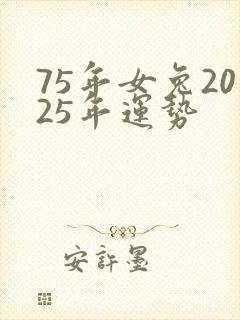 75年女兔20
25年運勢
安許墨